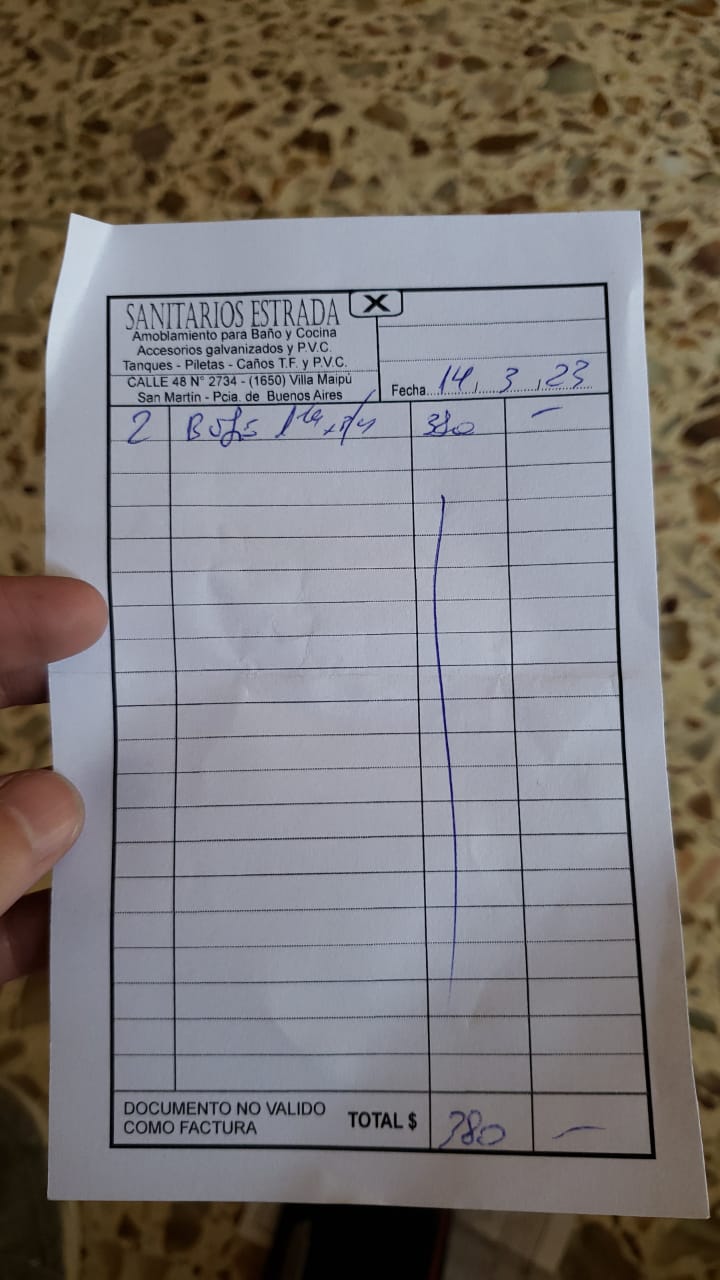 SANITARIOS ESTRADA
X
Amoblamiento para Baño y Cocina
Accesorios galvanizados y P.V.C.
Tanques - Piletas - Caños T.F. y P.V.C.
CALLE 48 N° 2734 - (1650) Villa Maipú
San Martín - Pcia. de Buenos Aires
Fecha 14, 3, 23
2 380 -
DOCUMENTO NO VALIDO
COMO FACTURA
TOTAL $ 380 -